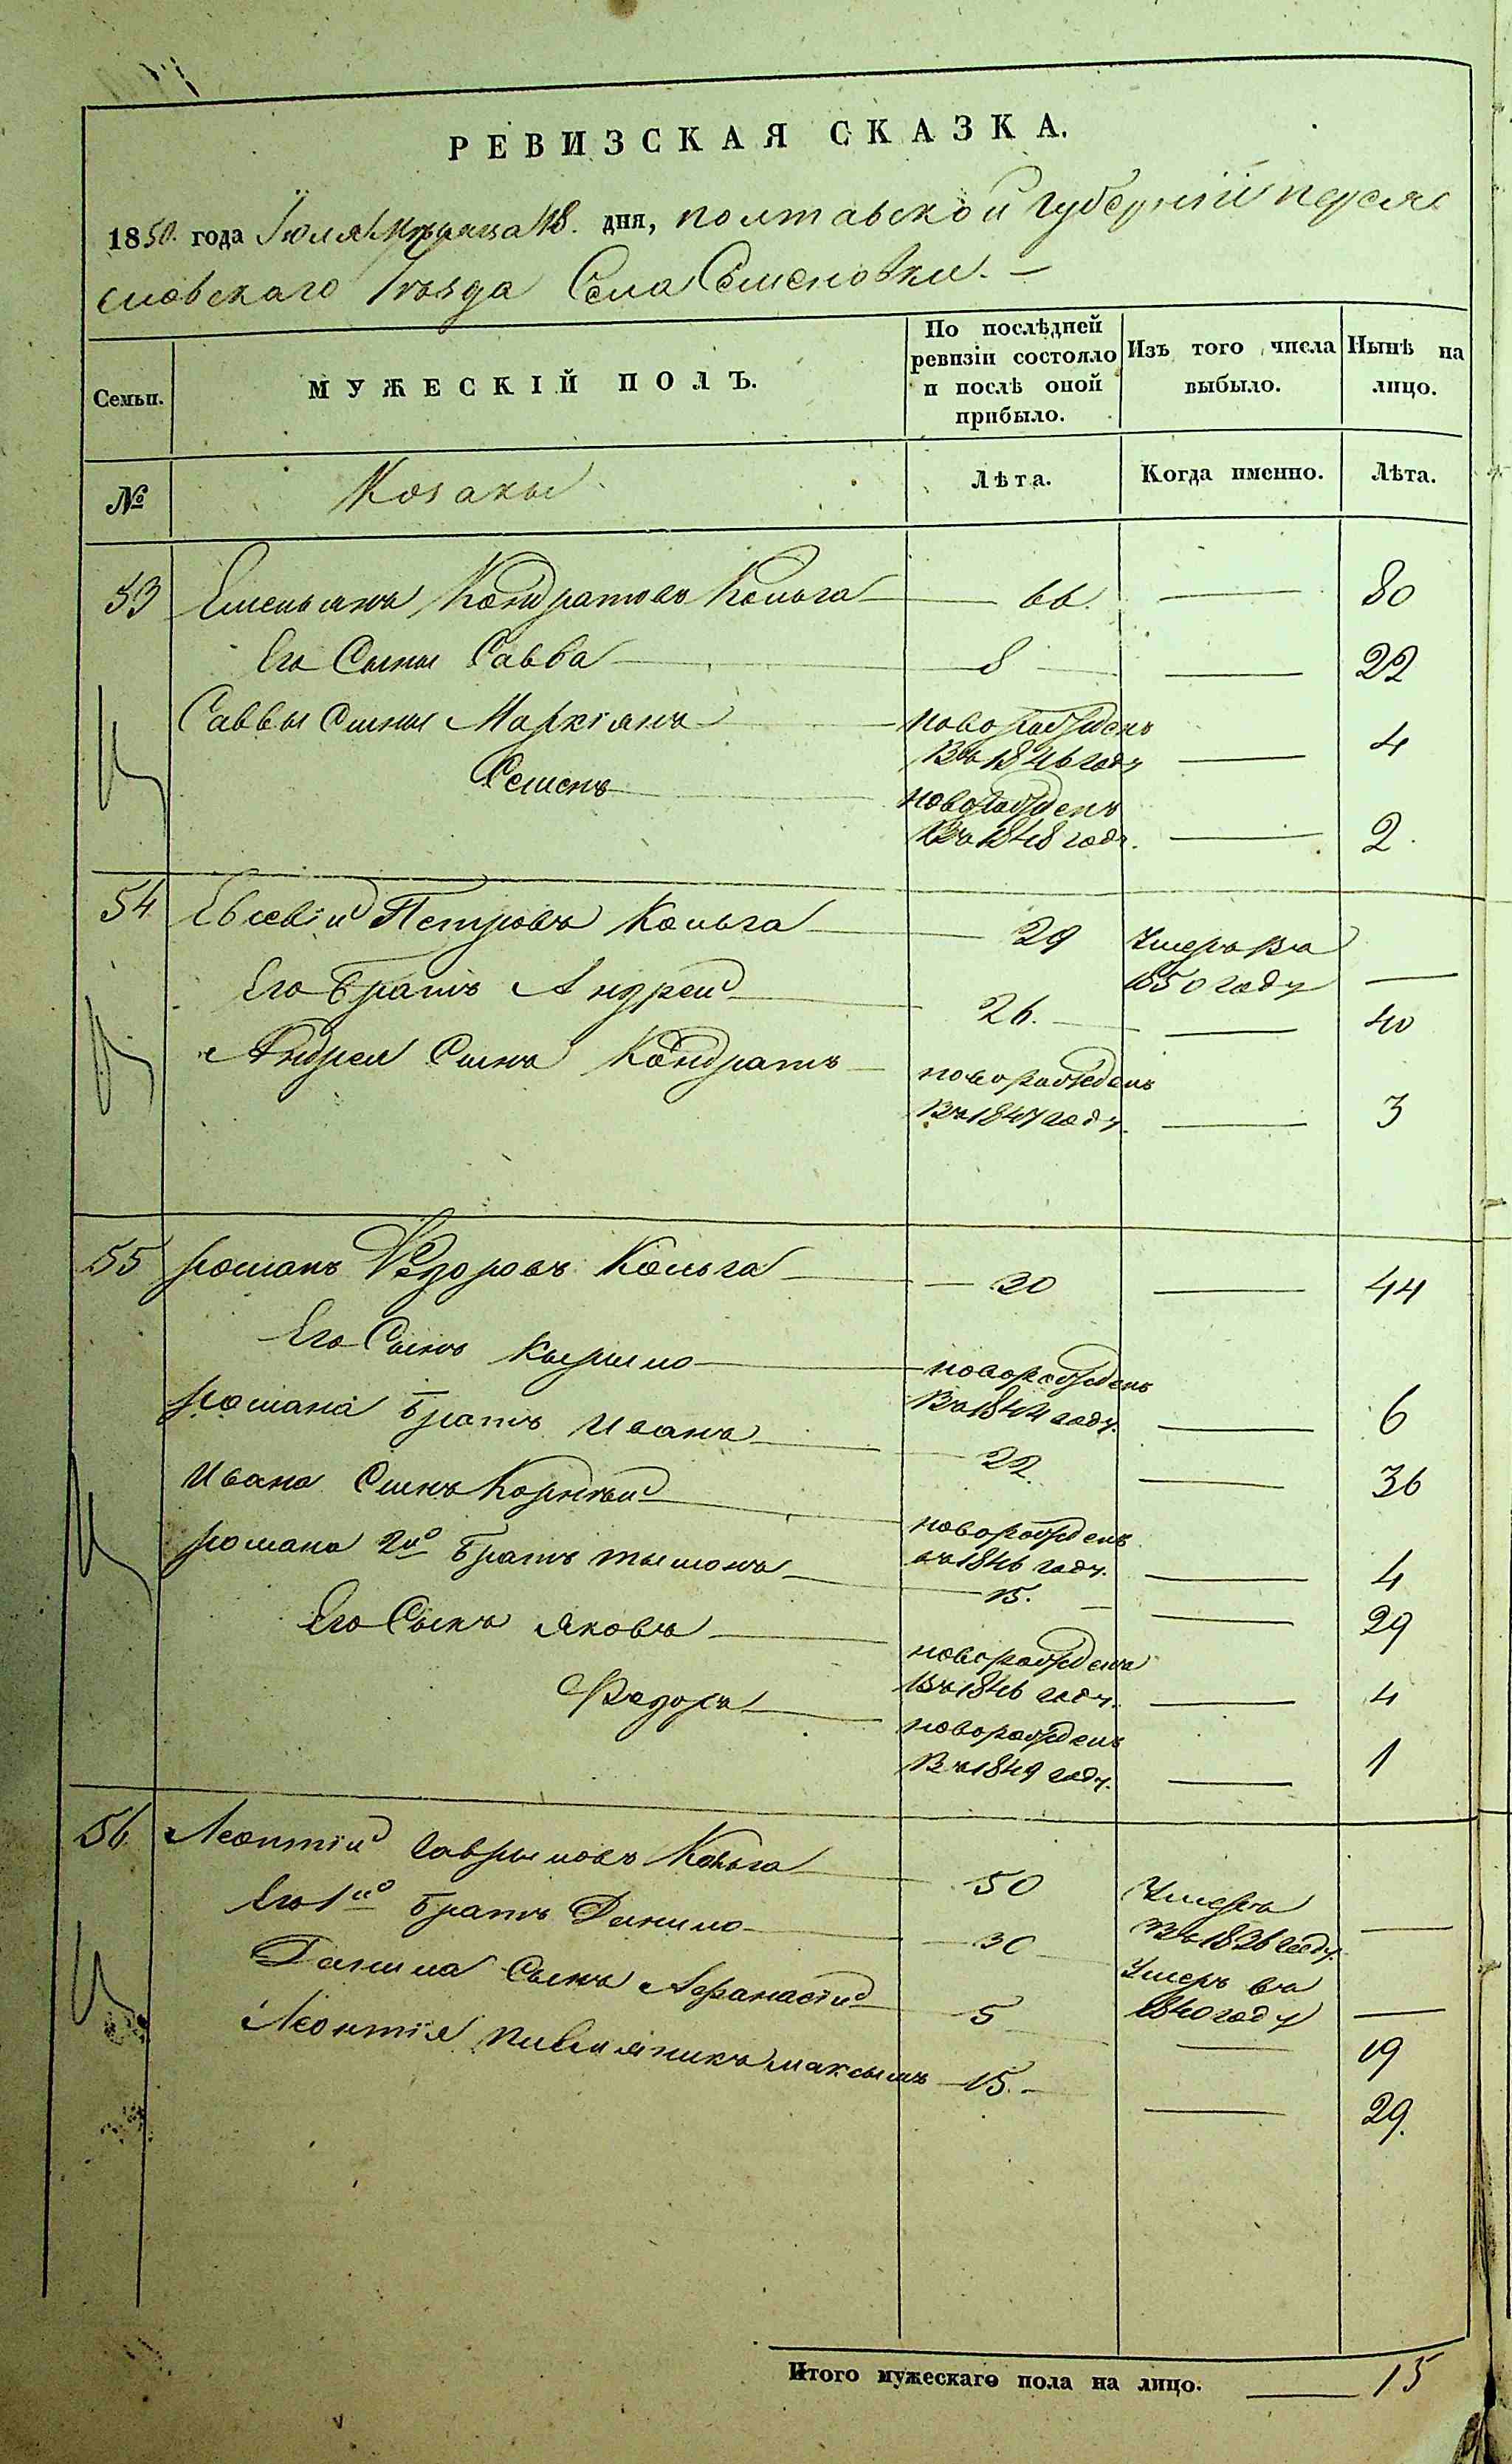 РЕВИЗСКАЯ СКАЗКА.
1850. года Іюля Мѣсяца 18. дня, полтавской губерніи переяс
ловскаго уѣзда Села Семеновки. —
Семьи.
МУЖЕСКІЙ ПОЛЪ.
По послѣдней ревизіи состояло и послѣ оной прибыло.
Изъ того числа выбыло.
Нынѣ на лицо.
№
Козаки
Лѣта.
Когда именно.
Лѣта.
53 Емельянъ Кондратовъ Кольга — 66. — 80
Его Сыны Савва — 8 — 22
Саввы Сыны Маркіянъ — новорожденъ
въ 1846 году — 4
Семенъ — новорожденъ
въ 1848 году. — 2.
54 Евсевій Петровъ Кольга — 29 Умеръ въ
1850 году —
Его братъ Андрей — 26. — 40
Андрея Сынъ Кондратъ — новорожденъ
въ 1847 году. — 3
55 романъ Федоровъ Кольга — 30 — 44
Его Сынъ Кырыло — новорожденъ
въ 1844 году. — 6
романа братъ Иванъ — 22. — 36
Ивана Сынъ Корнѣй — новорожденъ
въ 1846 году. — 4
романа 2й братъ тымошъ — 15. — 29
Его Сынъ яковъ — новорожденъ
въ 1846 году. — 4
Федоръ — новорожденъ
въ 1849 году. — 1
56 Леонтій Гаврыловъ Кольга — 50 Умеръ
въ 1836 году. —
Его 1й братъ Данило — 30 Умеръ въ
1840 году —
Данила Сынъ Афанасій — 5 — 19
Леонтія племяникъ максымъ — 15. — 29.
Итого мужескаго пола на лицо. — 15